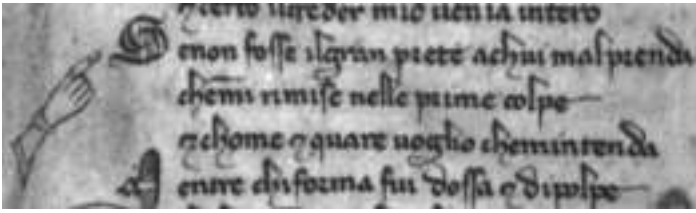 ⁊ certo ilcreder mio uenia intero
Senon fosse ilgran prete achui malprenda
chemi rimise nelle prime colpe
⁊ chome ⁊ quare uoglio chemintenda
Mentre chiforma fui dossa ⁊ dipolpe